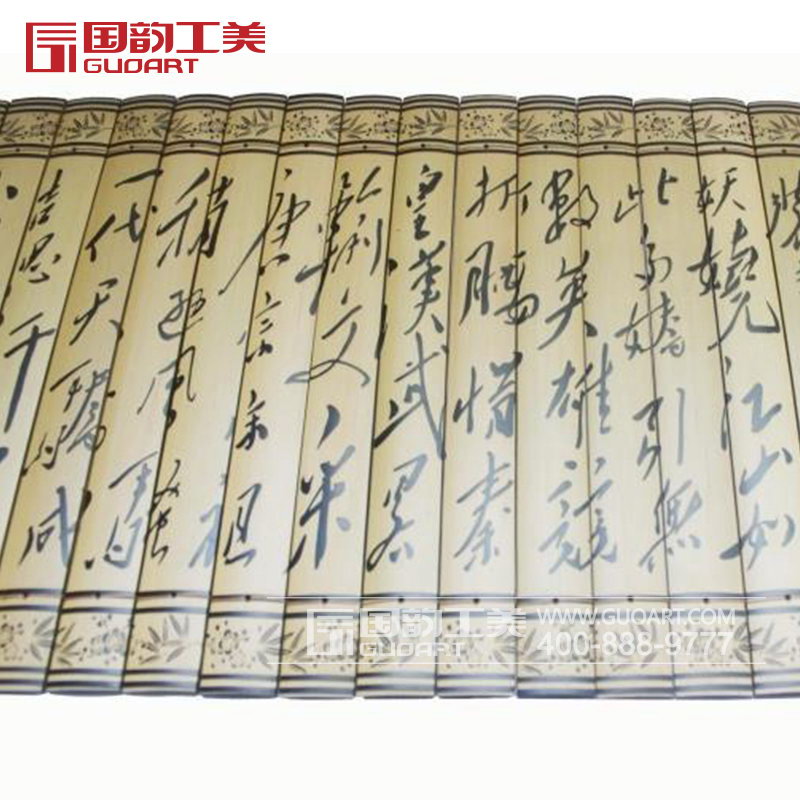 国韵工美
GUOART
妖嬈江山如
此多嬌引無
數英雄競
折腰惜秦
皇漢武略
輸文采
唐宗宋祖
稍遜風騷
一代天驕成
吉思汗
国韵工美
GUOART
WWW.GUOART.COM
400-888-9777